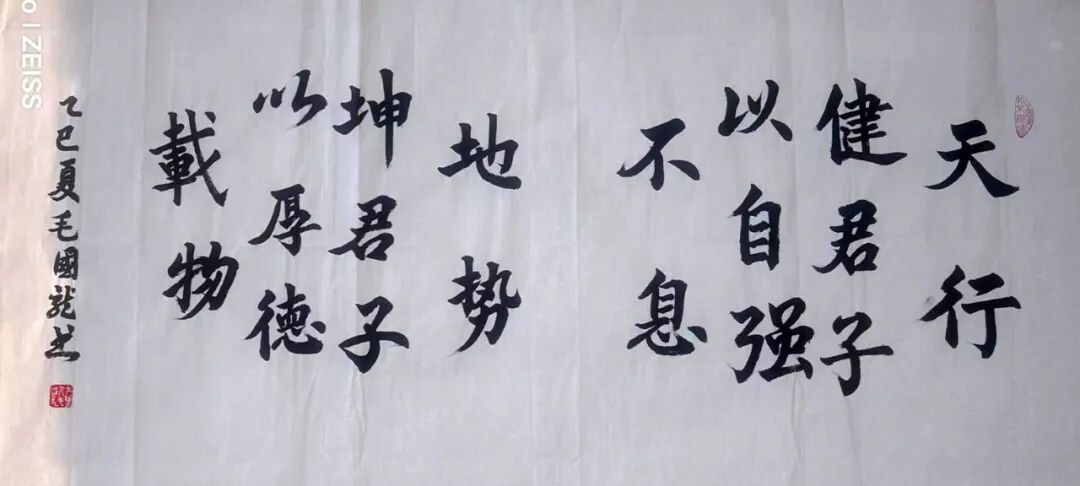 天行
健君子
以自强
不息
地势
坤君子
以厚德
載物
乙巳夏毛國龍书
o | ZEISS